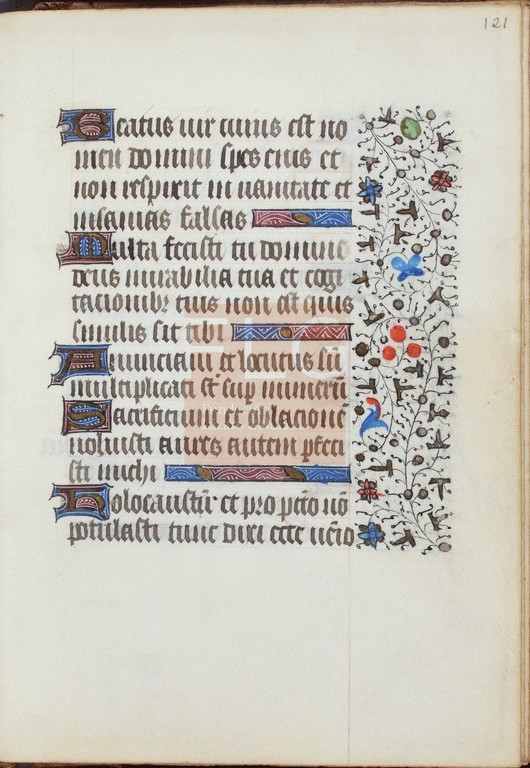 121
Beatus uir cuius est no
men domini spes eius et
non respexit in uanitate et
insanias falsas
Multa fecisti tu domine
deus mirabilia tua et cogi
tacionibz tuis non est quis
similis sit tibi
Annunciaui et locutus sū
multiplicati st̄ sup̄ numerū
Sacrificium et oblacionē
noluisti aures autem pfeci
sti michi
Holocaustū et pro pctō nō
postulasti tunc dixi ecce uenio